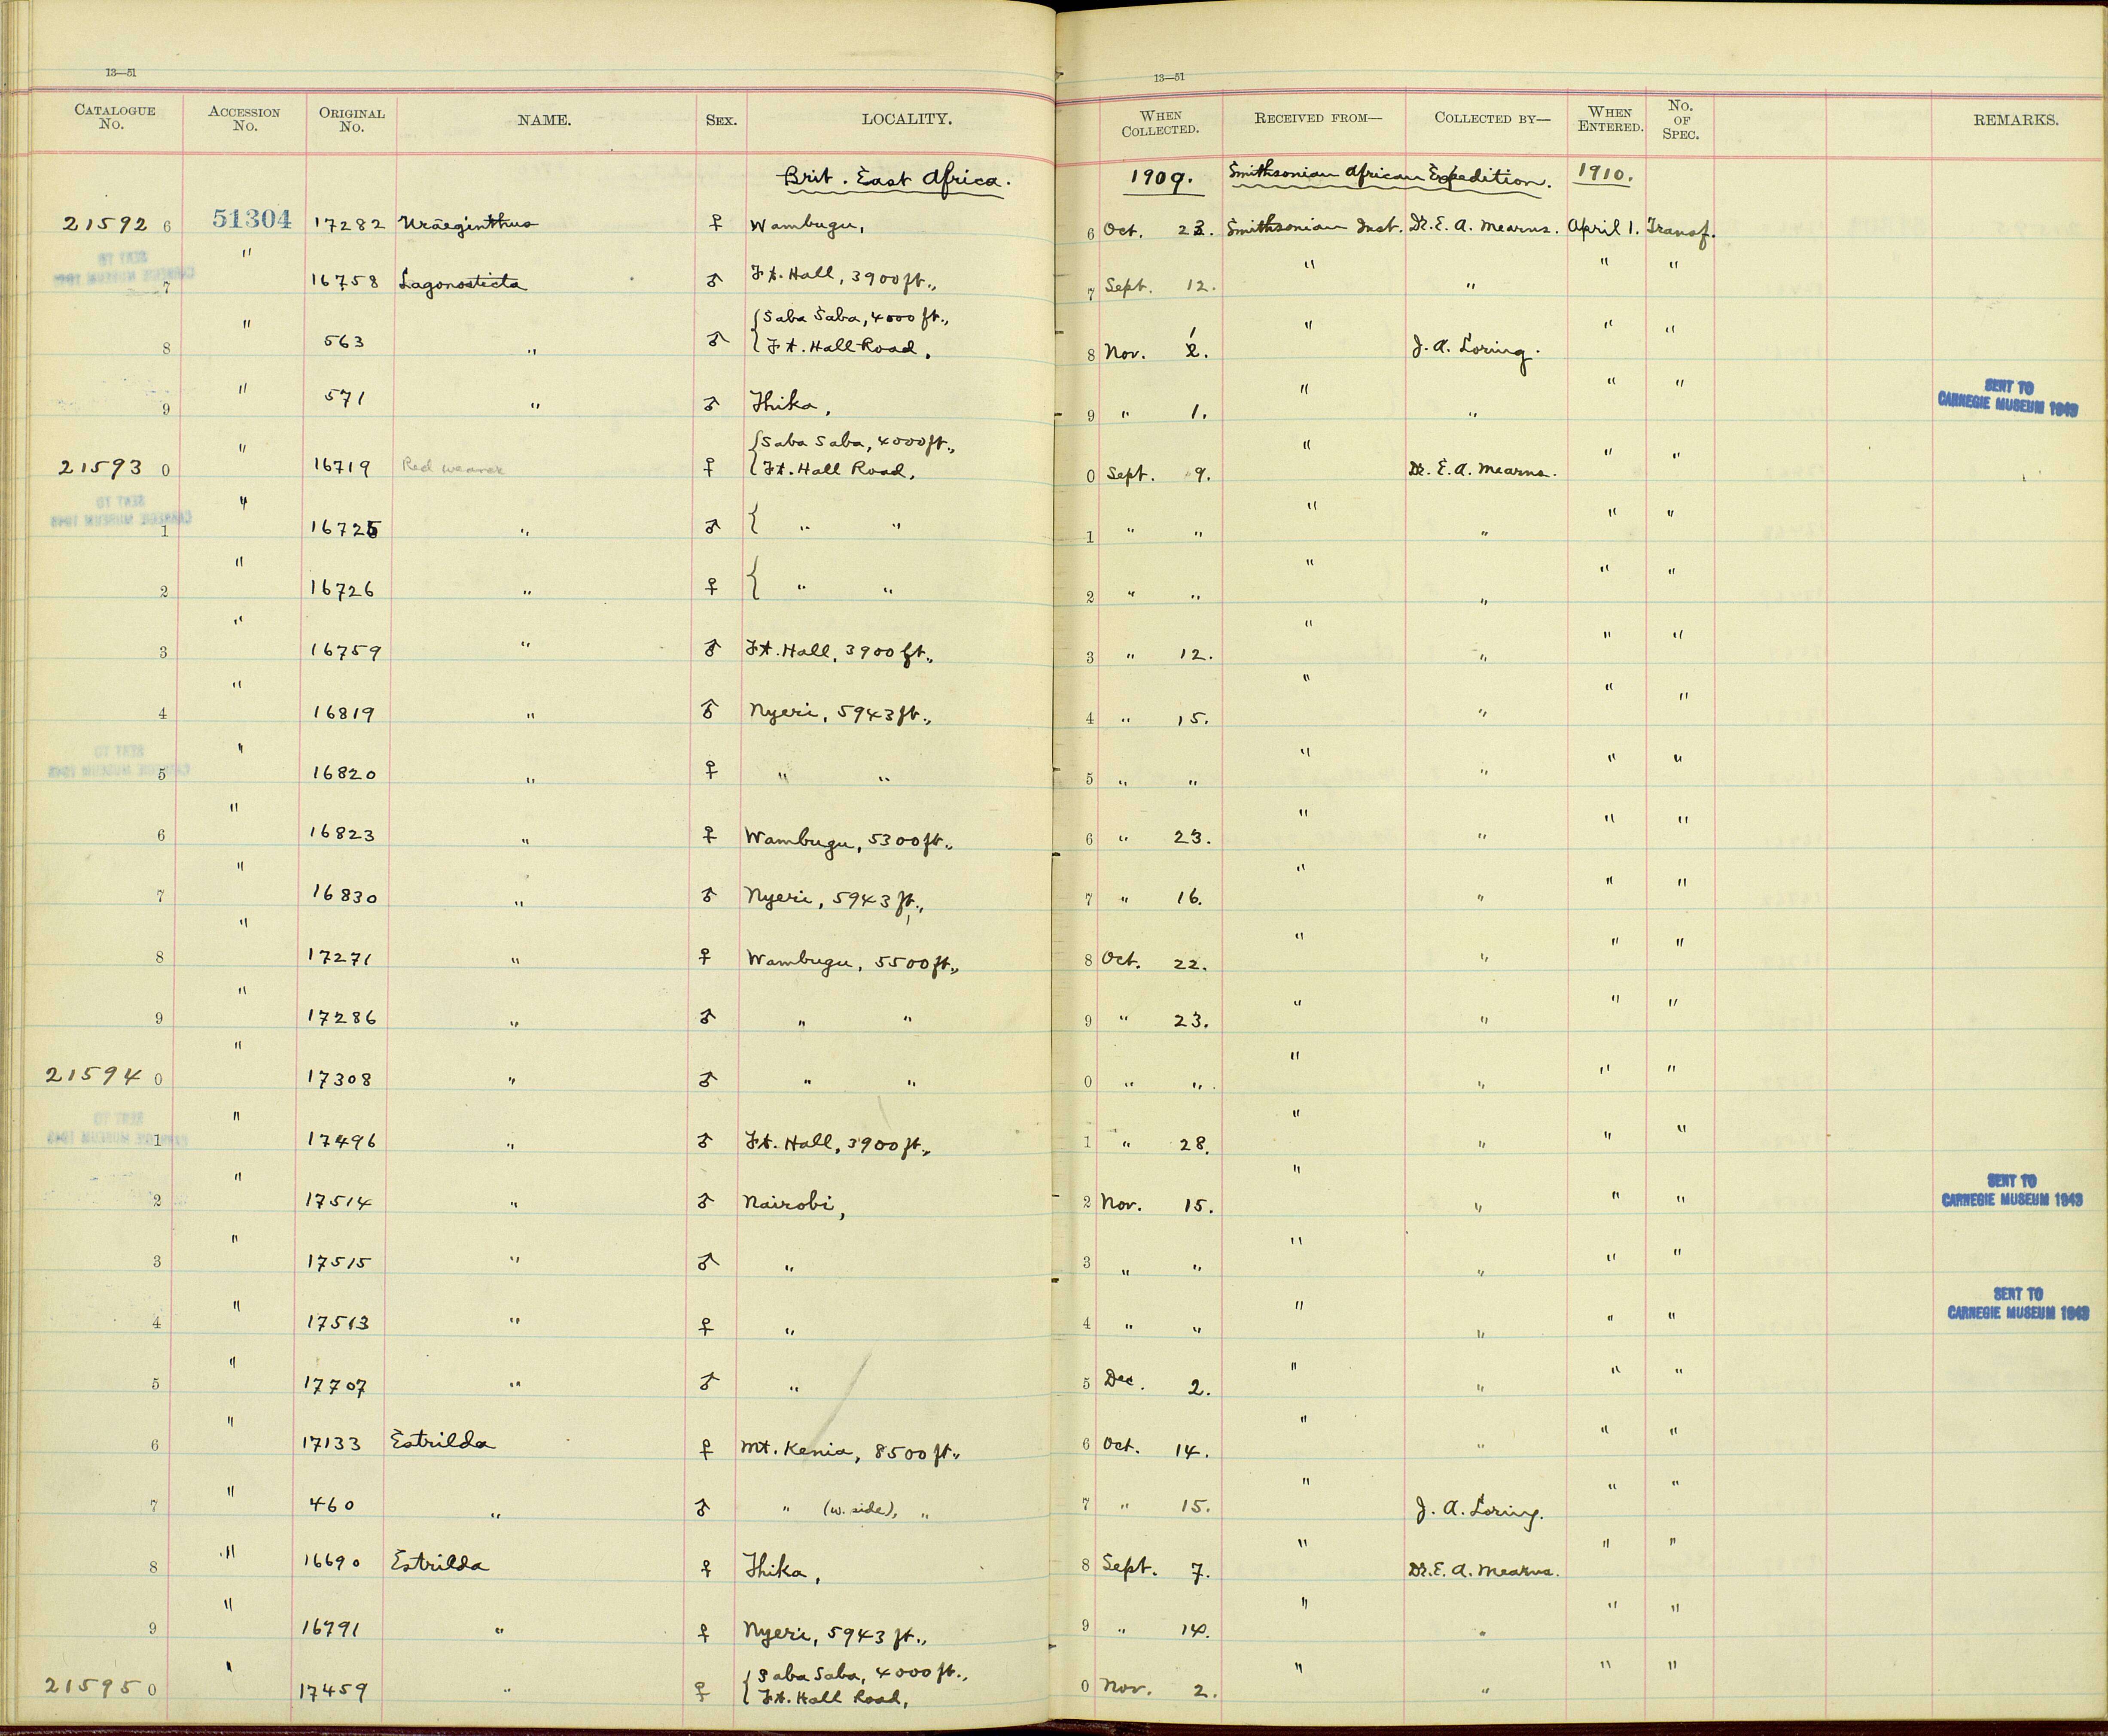 13—51
13—51
CATALOGUE No. ACCESSION No. ORIGINAL No. NAME. SEX. LOCALITY. WHEN COLLECTED. RECEIVED FROM— COLLECTED BY— WHEN ENTERED. No. OF SPEC. REMARKS.
Brit. East Africa. 1909. Smithsonian African Expedition. 1910.
21592 6 51304 17282 Uraeginthus ♀ Wambugu, 6 Oct. 23. Smithsonian Inst. Dr. E. A. Mearns. April 1. Transf.
7 " 16758 Lagonosticta ♂ Ft. Hall, 3900 ft., 7 Sept. 12. " " " "
8 " 563 " ♂ { Saba Saba, 4000 ft., Ft. Hall Road, 8 Nov. 1. " J. A. Loring. " "
9 " 571 " ♂ Thika, 9 " 1. " " " " SENT TO CARNEGIE MUSEUM 1943
21593 0 " 16719 Red weaver ♀ { Saba Saba, 4000 ft., Ft. Hall Road, 0 Sept. 9. " Dr. E. A. Mearns. " "
1 " 16725 " ♂ { " " 1 " " " " " "
2 " 16726 " ♀ { " " 2 " " " " " "
3 " 16759 " ♂ Ft. Hall, 3900 ft., 3 " 12. " " " "
4 " 16819 " ♂ Nyeri, 5943 ft., 4 " 15. " " " "
5 " 16820 " ♀ " " 5 " " " " " "
6 " 16823 " ♀ Wambugu, 5300 ft., 6 " 23. " " " "
7 " 16830 " ♂ Nyeri, 5943 ft., 7 " 16. " " " "
8 " 17271 " ♀ Wambugu, 5500 ft., 8 Oct. 22. " " " "
9 " 17286 " ♂ " " 9 " 23. " " " "
21594 0 " 17308 " ♂ " " 0 " " " " " "
1 " 17496 " ♂ Ft. Hall, 3900 ft., 1 " 28. " " " "
2 " 17514 " ♂ Nairobi, 2 Nov. 15. " " " " SENT TO CARNEGIE MUSEUM 1943
3 " 17515 " ♂ " 3 " " " " " "
4 " 17513 " ♀ " 4 " " " " " " SENT TO CARNEGIE MUSEUM 1943
5 " 17707 " ♂ " 5 Dec. 2. " " " "
6 " 17133 Estrilda ♀ Mt. Kenia, 8500 ft., 6 Oct. 14. " " " "
7 " 460 " ♂ " (w. side), " 7 " 15. " J. A. Loring. " "
8 " 16690 Estrilda ♀ Thika, 8 Sept. 7. " Dr. E. A. Mearns. " "
9 " 16791 " ♀ Nyeri, 5943 ft., 9 " 14. " " " "
21595 0 " 17459 " ♀ { Saba Saba, 4000 ft., Ft. Hall Road, 0 Nov. 2. " " " "